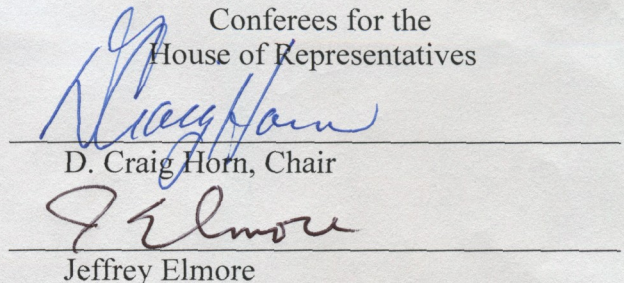 Conferees for the
House of Representatives
D Craig Horn
D. Craig Horn, Chair
J Elmore
Jeffrey Elmore